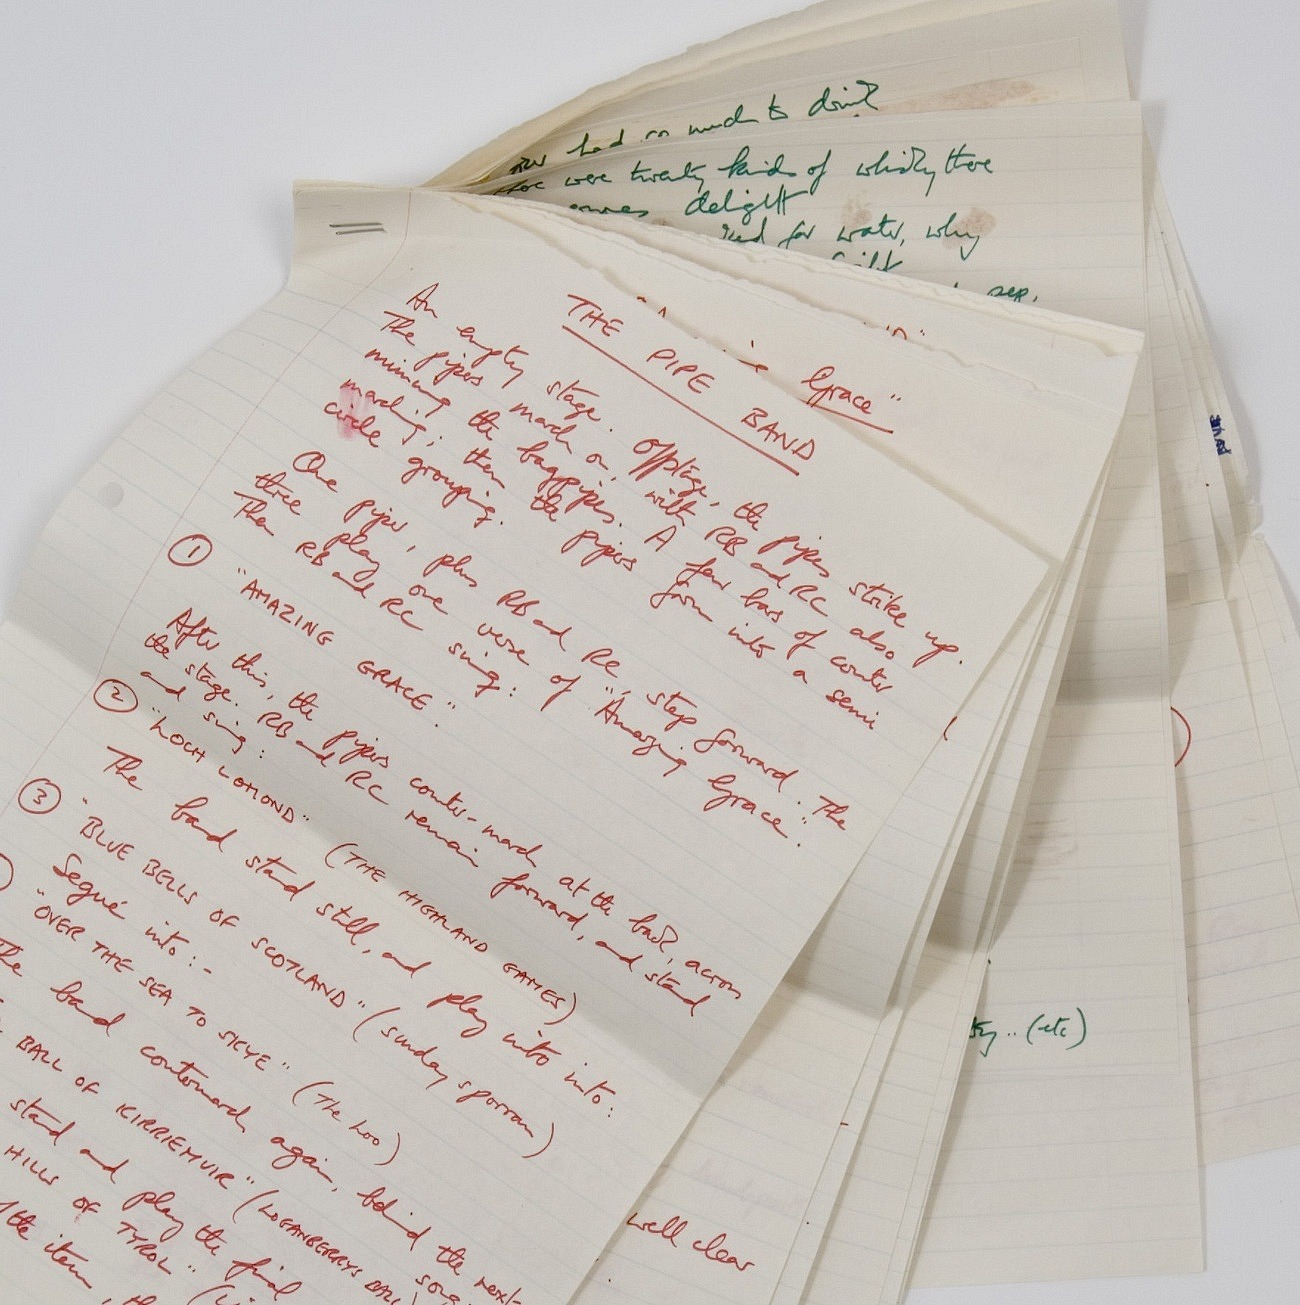 THE PIPE BAND
An empty stage. Offstage, the pipes strike up.
The pipers march on, with RB and RC also
miming the bagpipes. A few bars of counter
marching; then the pipers form into a semi
circle grouping.
One piper, plus RB and RC, step forward. The
three play one verse of "Amazing Grace".
Then RB and RC sing:
① "AMAZING GRACE".
After this, the pipers counter-march at the back, across
the stage. RB and RC remain forward, and stand
and sing:
② "LOCH LOMOND" (THE HIGHLAND GAMES)
The band stand still, and play into into:
③ "BLUE BELLS OF SCOTLAND" (Sunday sporran)
Segué into:-
"OVER THE SEA TO SKYE" (The Loo)
The band countermarch again, behind the next
song
BALL OF KIRRIEMUIR" (LOGANBERRYS
stand and play the final
HILLS OF TYROL"
the item,
had so much to drink
were twenty kinds of whisky there
delight
for water, why
Grace"
(etc)
well clear